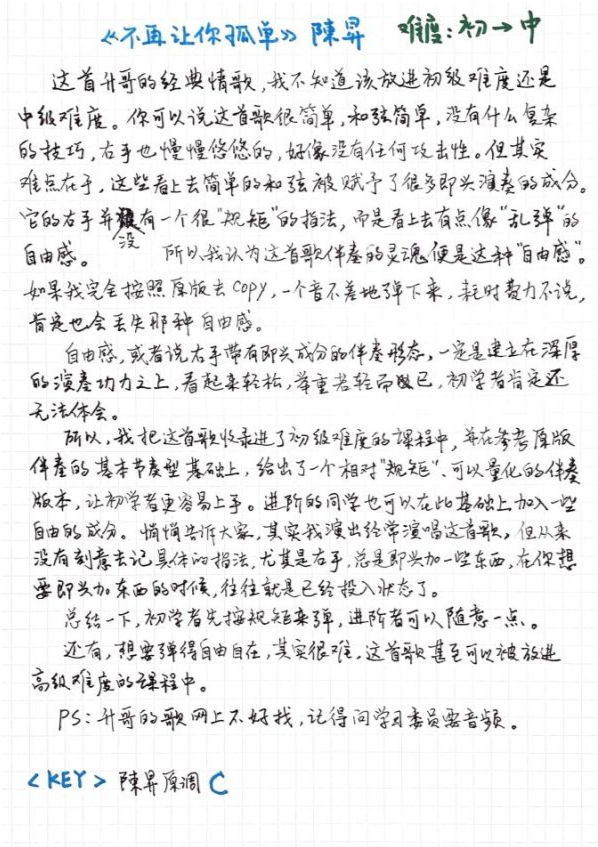 《不再让你孤单》 陳昇 难度：初→中
这首升哥的经典情歌，我不知道该放进初级难度还是
中级难度。你可以说这首歌很简单，和弦简单，没有什么复杂
的技巧，右手也慢慢悠悠的，好像没有任何攻击性。但其实
难点在于，这些看上去简单的和弦被赋予了很多即兴演奏的成分。
它的右手并没有一个很“规矩”的指法，而是看上去有点像“乱弹”的
自由感。 所以我认为这首歌伴奏的灵魂便是这种“自由感”。
如果我完全按照原版去copy，一个音不差地弹下来，耗时费力不说，
肯定也会丢失那种自由感。
自由感，或者说右手带有即兴成分的伴奏形态，一定是建立在深厚
的演奏功力之上，看起来轻松，举重若轻而已，初学者肯定还
无法体会。
所以，我把这首歌收录进了初级难度的课程中，并在参考原版
伴奏的基本节奏型基础上，给出了一个相对“规矩”、可以量化的伴奏
版本，让初学者更容易上手。进阶的同学也可以在此基础上加入一些
自由的成分。悄悄告诉大家，其实我演出经常演唱这首歌，但从来
没有刻意去记具体的指法，尤其是右手，总是即兴加一些东西，在你想
要即兴加东西的时候，往往就是已经投入状态了。
总结一下，初学者先按规矩来弹，进阶者可以随意一点。
还有，想要弹得自由自在，其实很难，这首歌甚至可以被放进
高级难度的课程中。
PS：升哥的歌网上不好找，记得问学习委员要音频。
<KEY> 陳昇原调 C